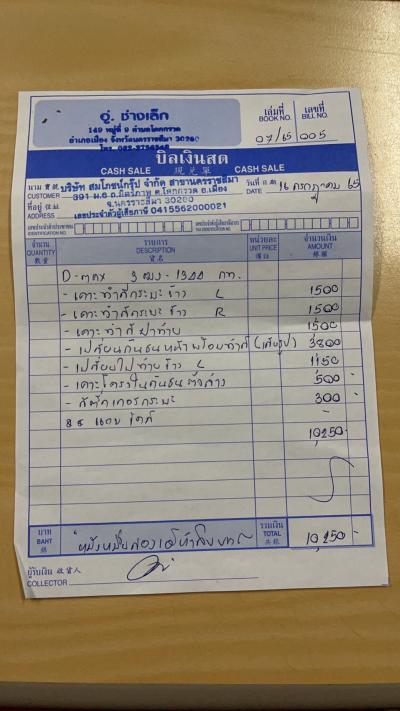 อู่ ช่างเล็ก
149 หมู่ที่ 9 ตำบลโคกกรวด
อำเภอเมือง จังหวัดนครราชสีมา 30280
เล่มที่ BOOK NO. 07/65
เลขที่ BILL NO. 005
บิลเงินสด
CASH SALE 現兌單 CASH SALE
นาม CUSTOMER บริษัท สมโภชน์กรุ๊ป จำกัด สาขานครราชสีมา
วันที่ DATE 16 กรกฎาคม 65
391 ม.6 ถ.มิตรภาพ ต.โคกกรวด อ.เมือง
ที่อยู่ ADDRESS จ.นครราชสีมา 30280
เลขประจำตัวผู้เสียภาษี 0415562000021
จำนวน QUANTITY 數量
รายการ DESCRIPTION 貨名
หน่วยละ UNIT PRICE
จำนวนเงิน AMOUNT
D-max 3 ฒฆ-1300 กท.
- เคาะทำสีกระบะข้าง L 1500
- เคาะทำสีกระบะข้าง R 1500
- เคาะทำสีฝาท้าย 1500
- เปลี่ยนกันชนหน้าพร้อมทำสี 3800
- เปลี่ยนไฟท้ายข้าง L 1150
- เคาะโครงในกันชนตัวล่าง 500 -
- สติ๊กเกอร์กระบะ 300 -
10,250 -
บาท BAHT
รวมเงิน TOTAL 10,250 -
"หนึ่งหมื่นสองร้อยห้าสิบบาท"
ผู้รับเงิน 收貨人
COLLECTOR